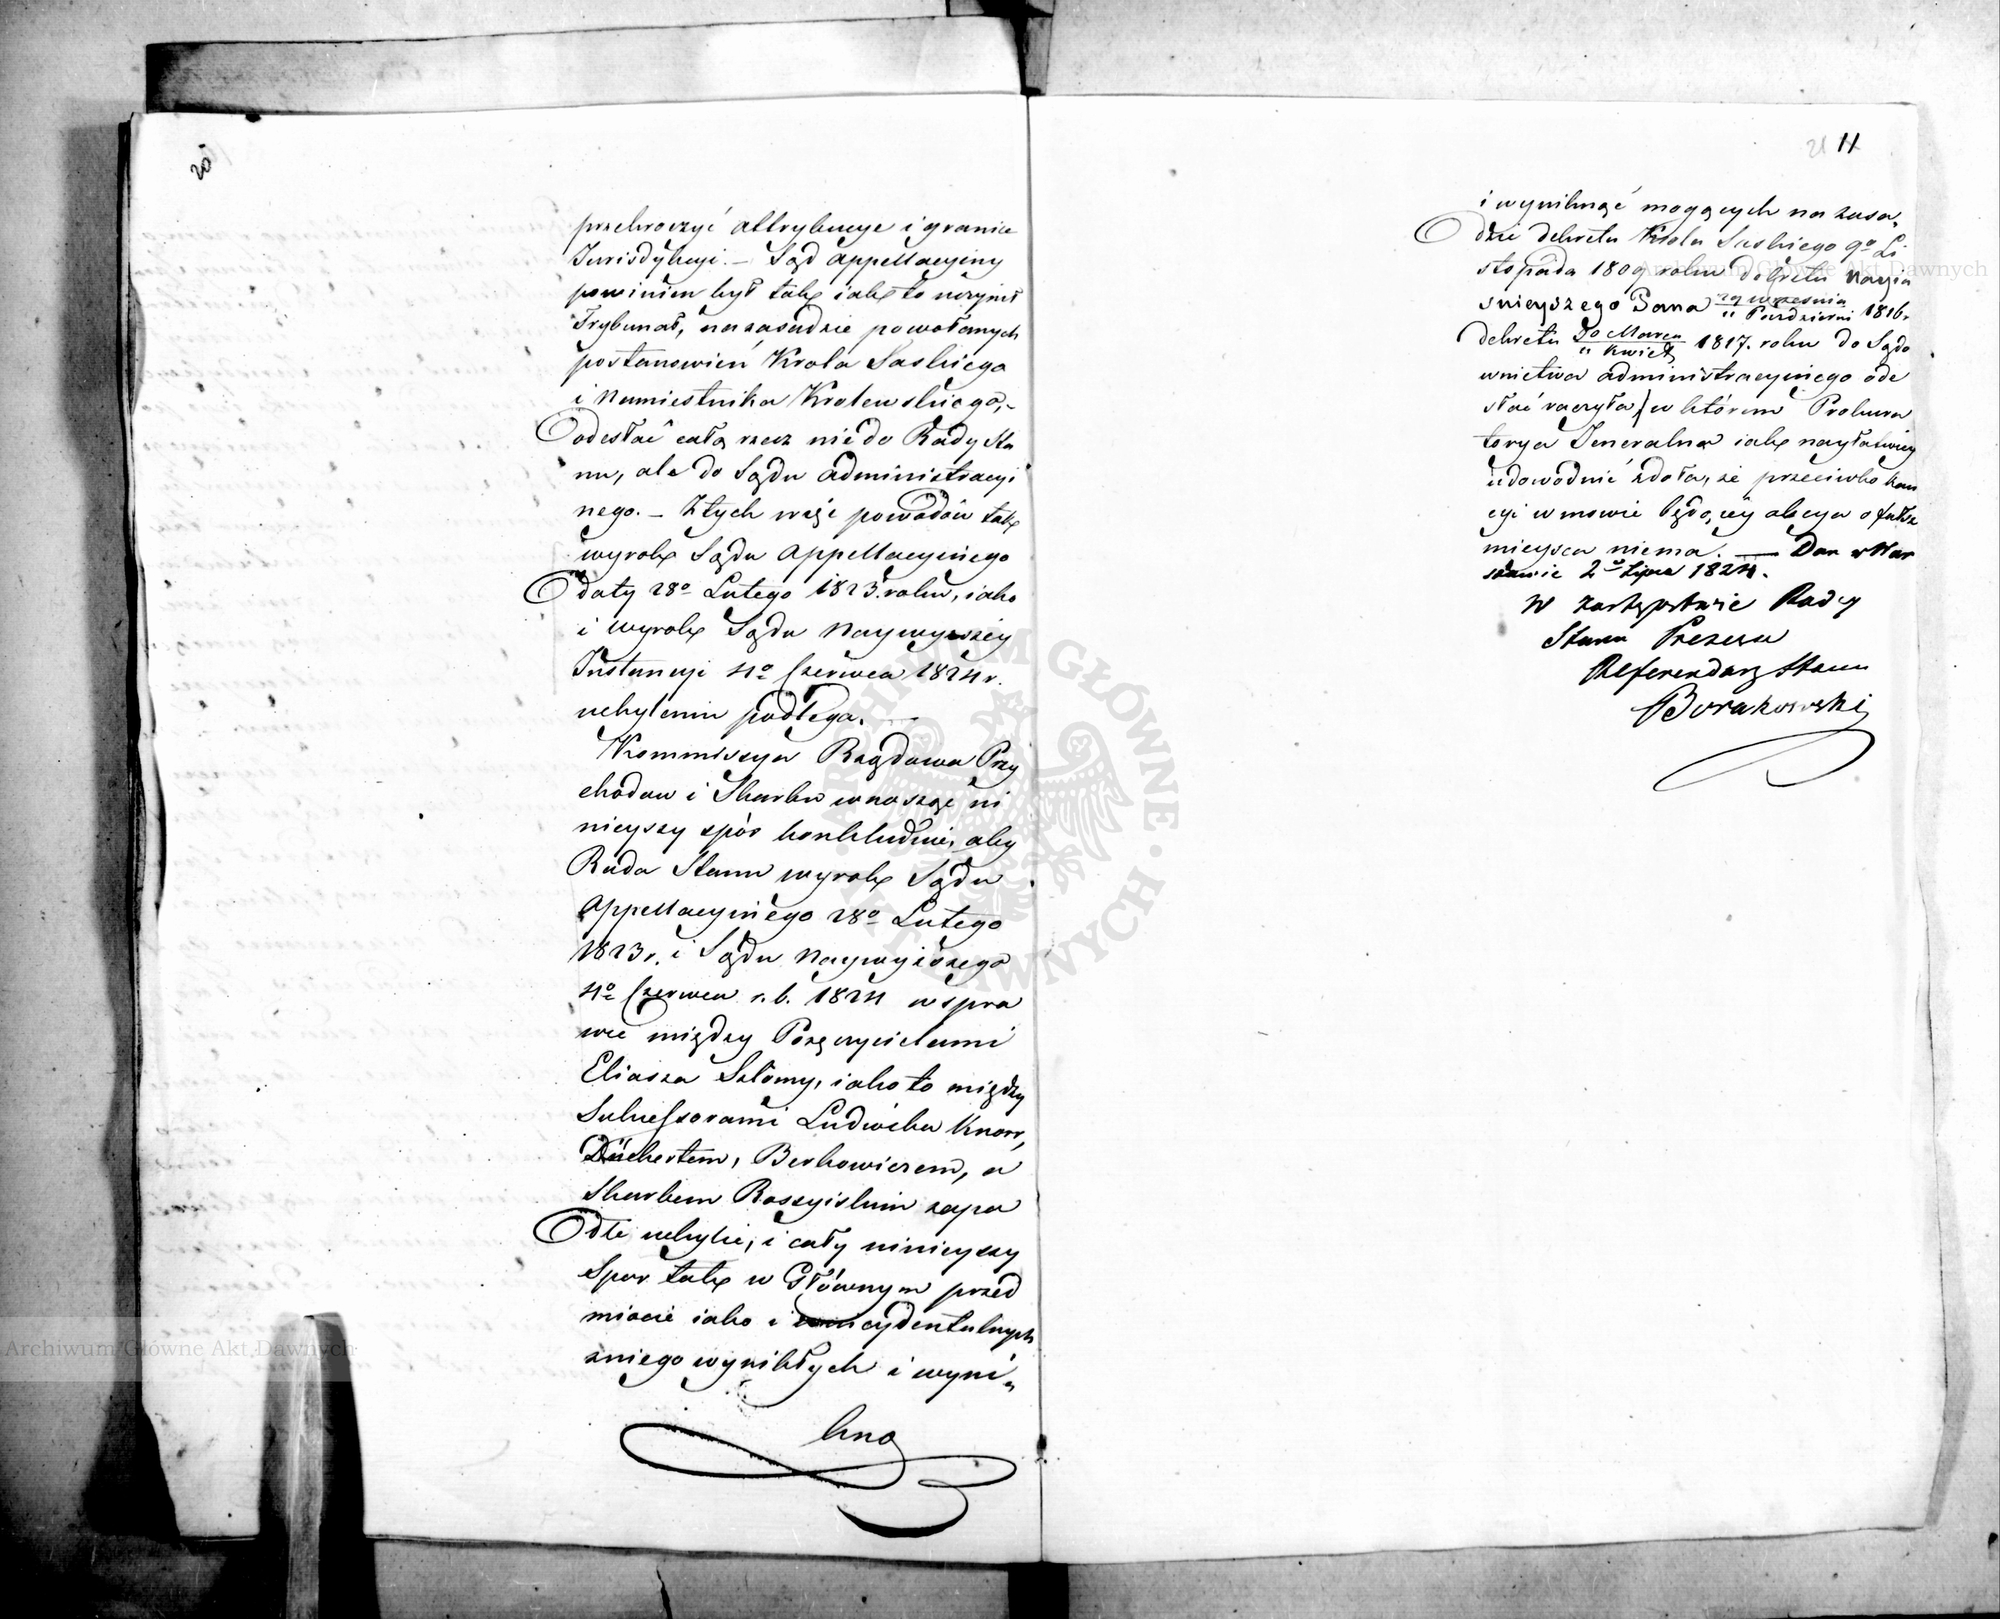 20
przekroczyć attrybucye i granice
Jurisdykcyi. — Sąd appellacyiny
powinien był tak iak to uczynił
Trybunał, na zasadzie powołanych
postanowień Króla Saskiego
i Namiestnika Krolewskiego,
odesłać całą rzecz nie do Rady Sta
nu, ale do Sądu administracyi
nego. — Z tych więc powodów tak
wyrok Sądu Appellacyinego
daty 28o Lutego 1823. roku, iako
i wyrok Sądu Naywyższey
Instancyi 4o Czerwca 1824 r.
uchyleniu podlega. —
Kommissya Rządowa Przy
chodow i Skarbu wnosząc ni
nieyszy spór konkluduie, aby
Rada Stanu wyrok Sądu
Appellacyinego 28o Lutego
1823 r. i Sądu Naywyższego
4o Czerwca r. b. 1824 w spra
wie między Poręczycielami
Eliasza Szlomy, iako to między
Sukcessorami Ludwika Knorr,
Dückertem, Berkowiczem, a
Skarbem Rossyiskim zapa
dłe uchylić, i cały ninieyszy
Spor tak w Głównym przed
miocie iako i incydentalnych
z niego wynikłych i wyni„
knąć
21 11
i wyniknąć mogących na zasa„
dzie dekretu Króla Saskiego 9o Li
stopada 1809 roku dekretu Nayia
śnieyszego Pana 29 Września / 11 Pazdzierni 1816 r
dekretu 30 Marca / 11 Kwiet 1817. roku do Sądo
wnictwa administracyinego ode
słać raczyła, w którem Prokura
torya Jeneralna iak nayłatwiey
udowodnić zdoła, że przeciwko kau
cyi w mowie będącey akcya o fałsz
mieysca niema. — Dan w War
szawie 2o Lipca 1824.
W zastępstwie Rady
Stanu Prezesa
Referendarz Stanu
Borakowski
Archiwum Główne Akt Dawnych
Archiwum Główne Akt Dawnych
ARCHIWUM GŁÓWNE AKT DAWNYCH